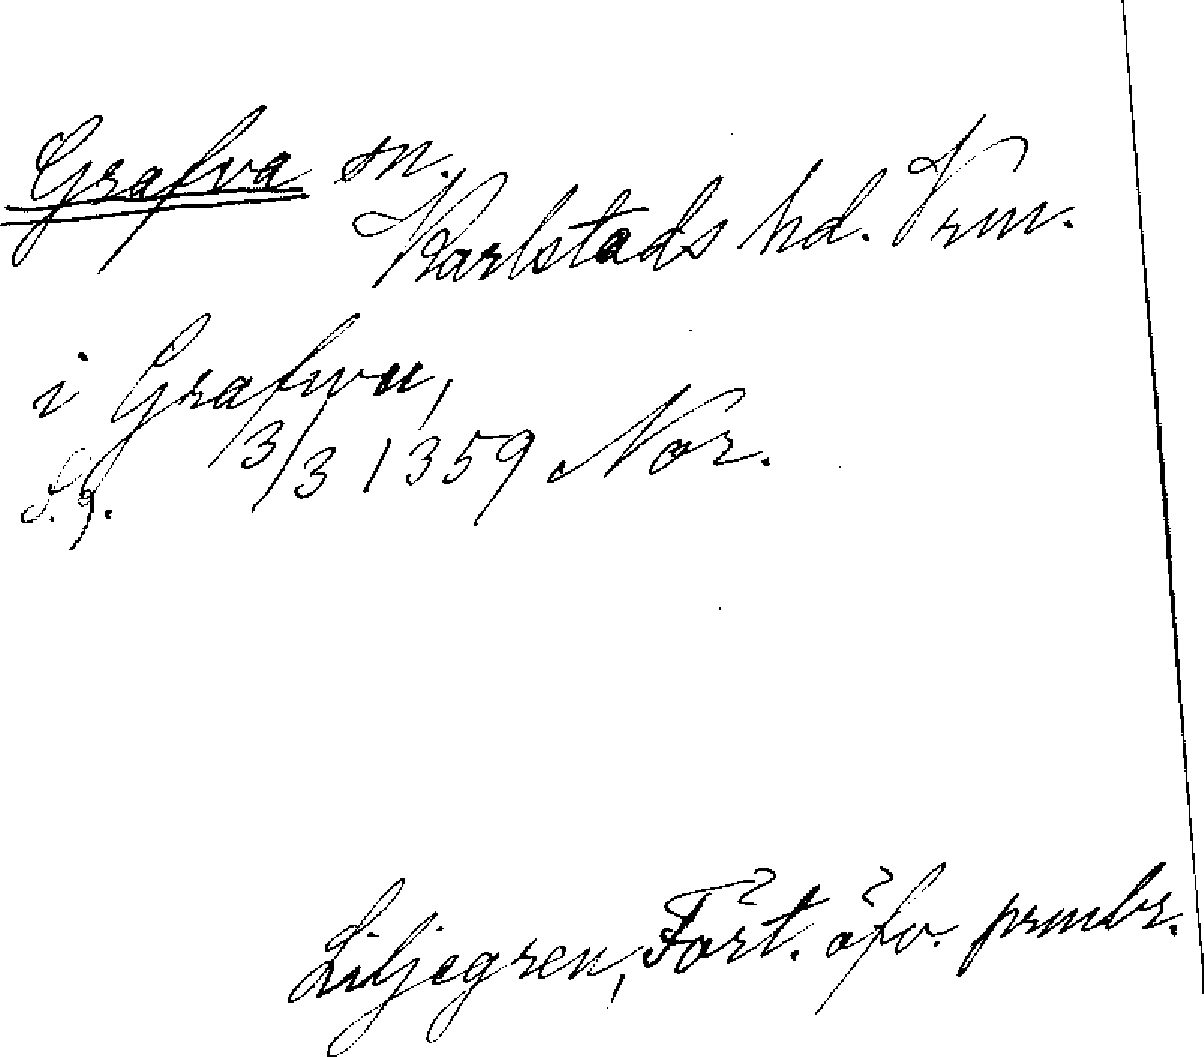 Grafva sn.
Karlstads hd. Vrm.
i Grafwu,
13/3 1359 Nor.
Liljegren, Fört. öfv. prmbr.